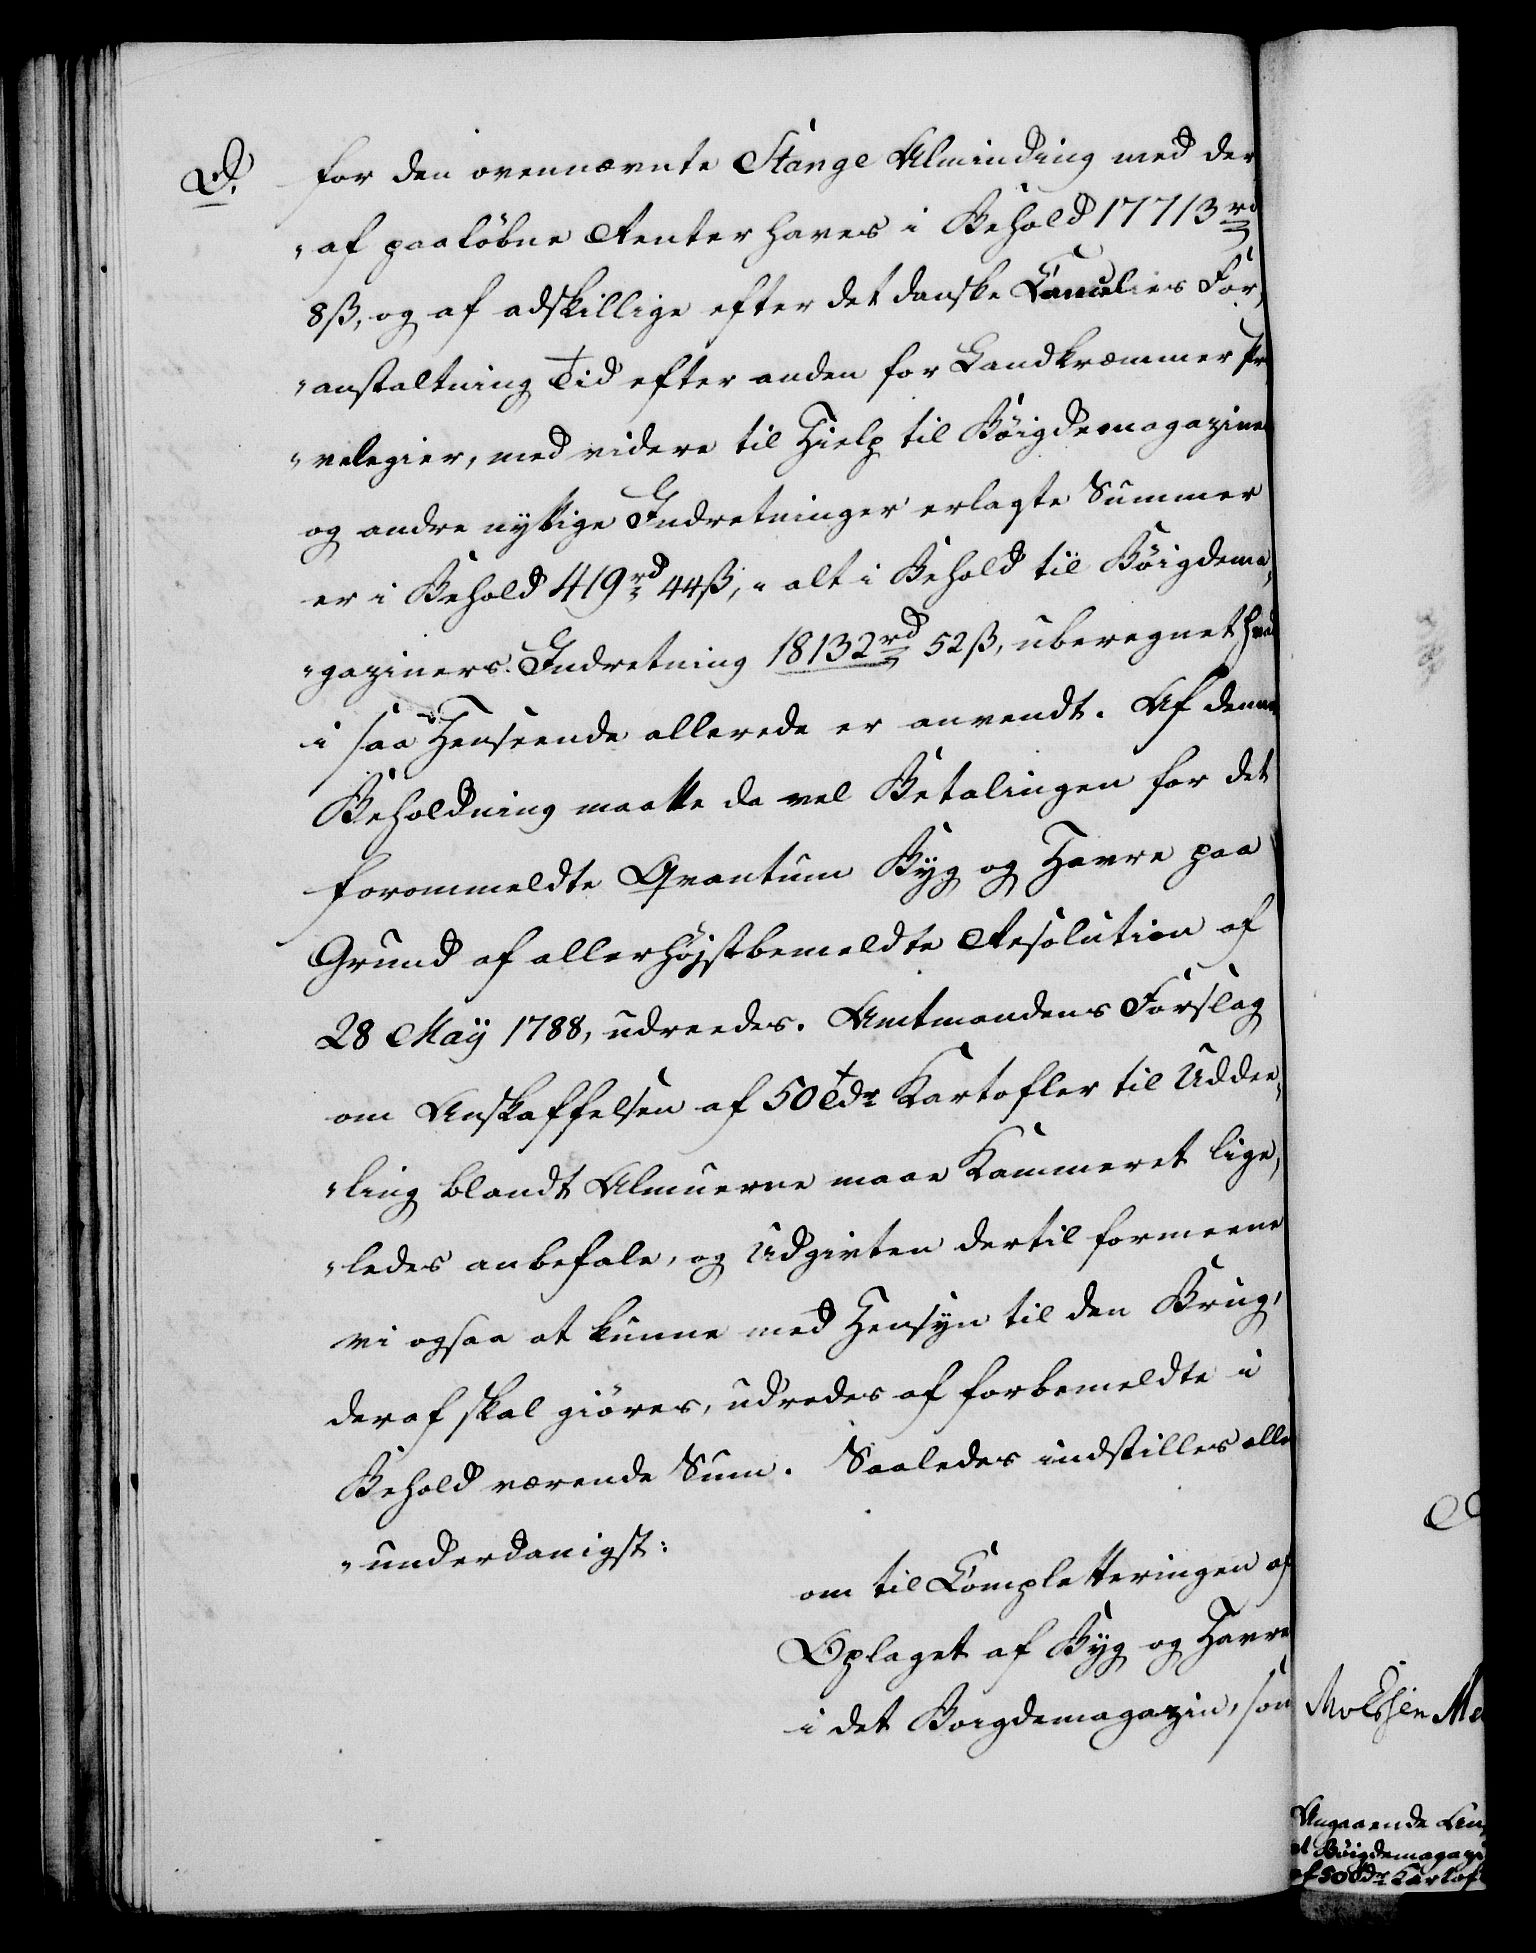 D.
for den ovennævnte Stange Alminding med der
"af paaløbne Renter haves i Behold 17713 rd
8ß, og af adskillige efter det danske Cancelies For,
"anstaltning Tid efter anden for Landkræmmer Pri
"velegier, med videre til Hielp til Böigdemagaziner
og andre nyttige Indretninger erlagte Summer
er i Behold 419 rd 44ß, " alt i Behold til Böigdema,
"gaziners Indretning 18132 rd 52ß, uberegnet hvad
i saa Henseende allerede er anvendt. Af denne
Beholdning maatte da vel Betalingen for det
forommeldte Qvantum Byg og Havre paa
Grund af allerhöjstbemeldte Resolution af
28 Maÿ 1788, udreedes. Amtmandens Forslag
om Anskaffelsen af 50 Tdr Kartofler til Uddee,
"ling blandt Almuerne maae Kammeret lige,
"ledes anbefale, og Udgivten dertil formeene
vi ogsaa at kunne med Hensÿn til den Brug,
deraf skal giöres, udredes af forbemeldte i
Behold værende Sum. Saaledes indstilles aller
"underdanigst:
om til Completteringen af
Oplaget af Bÿg og Havre
i det Boigdemagazin, som
Angaaende
Böigdemagazi
af 50 Tdr Kartof